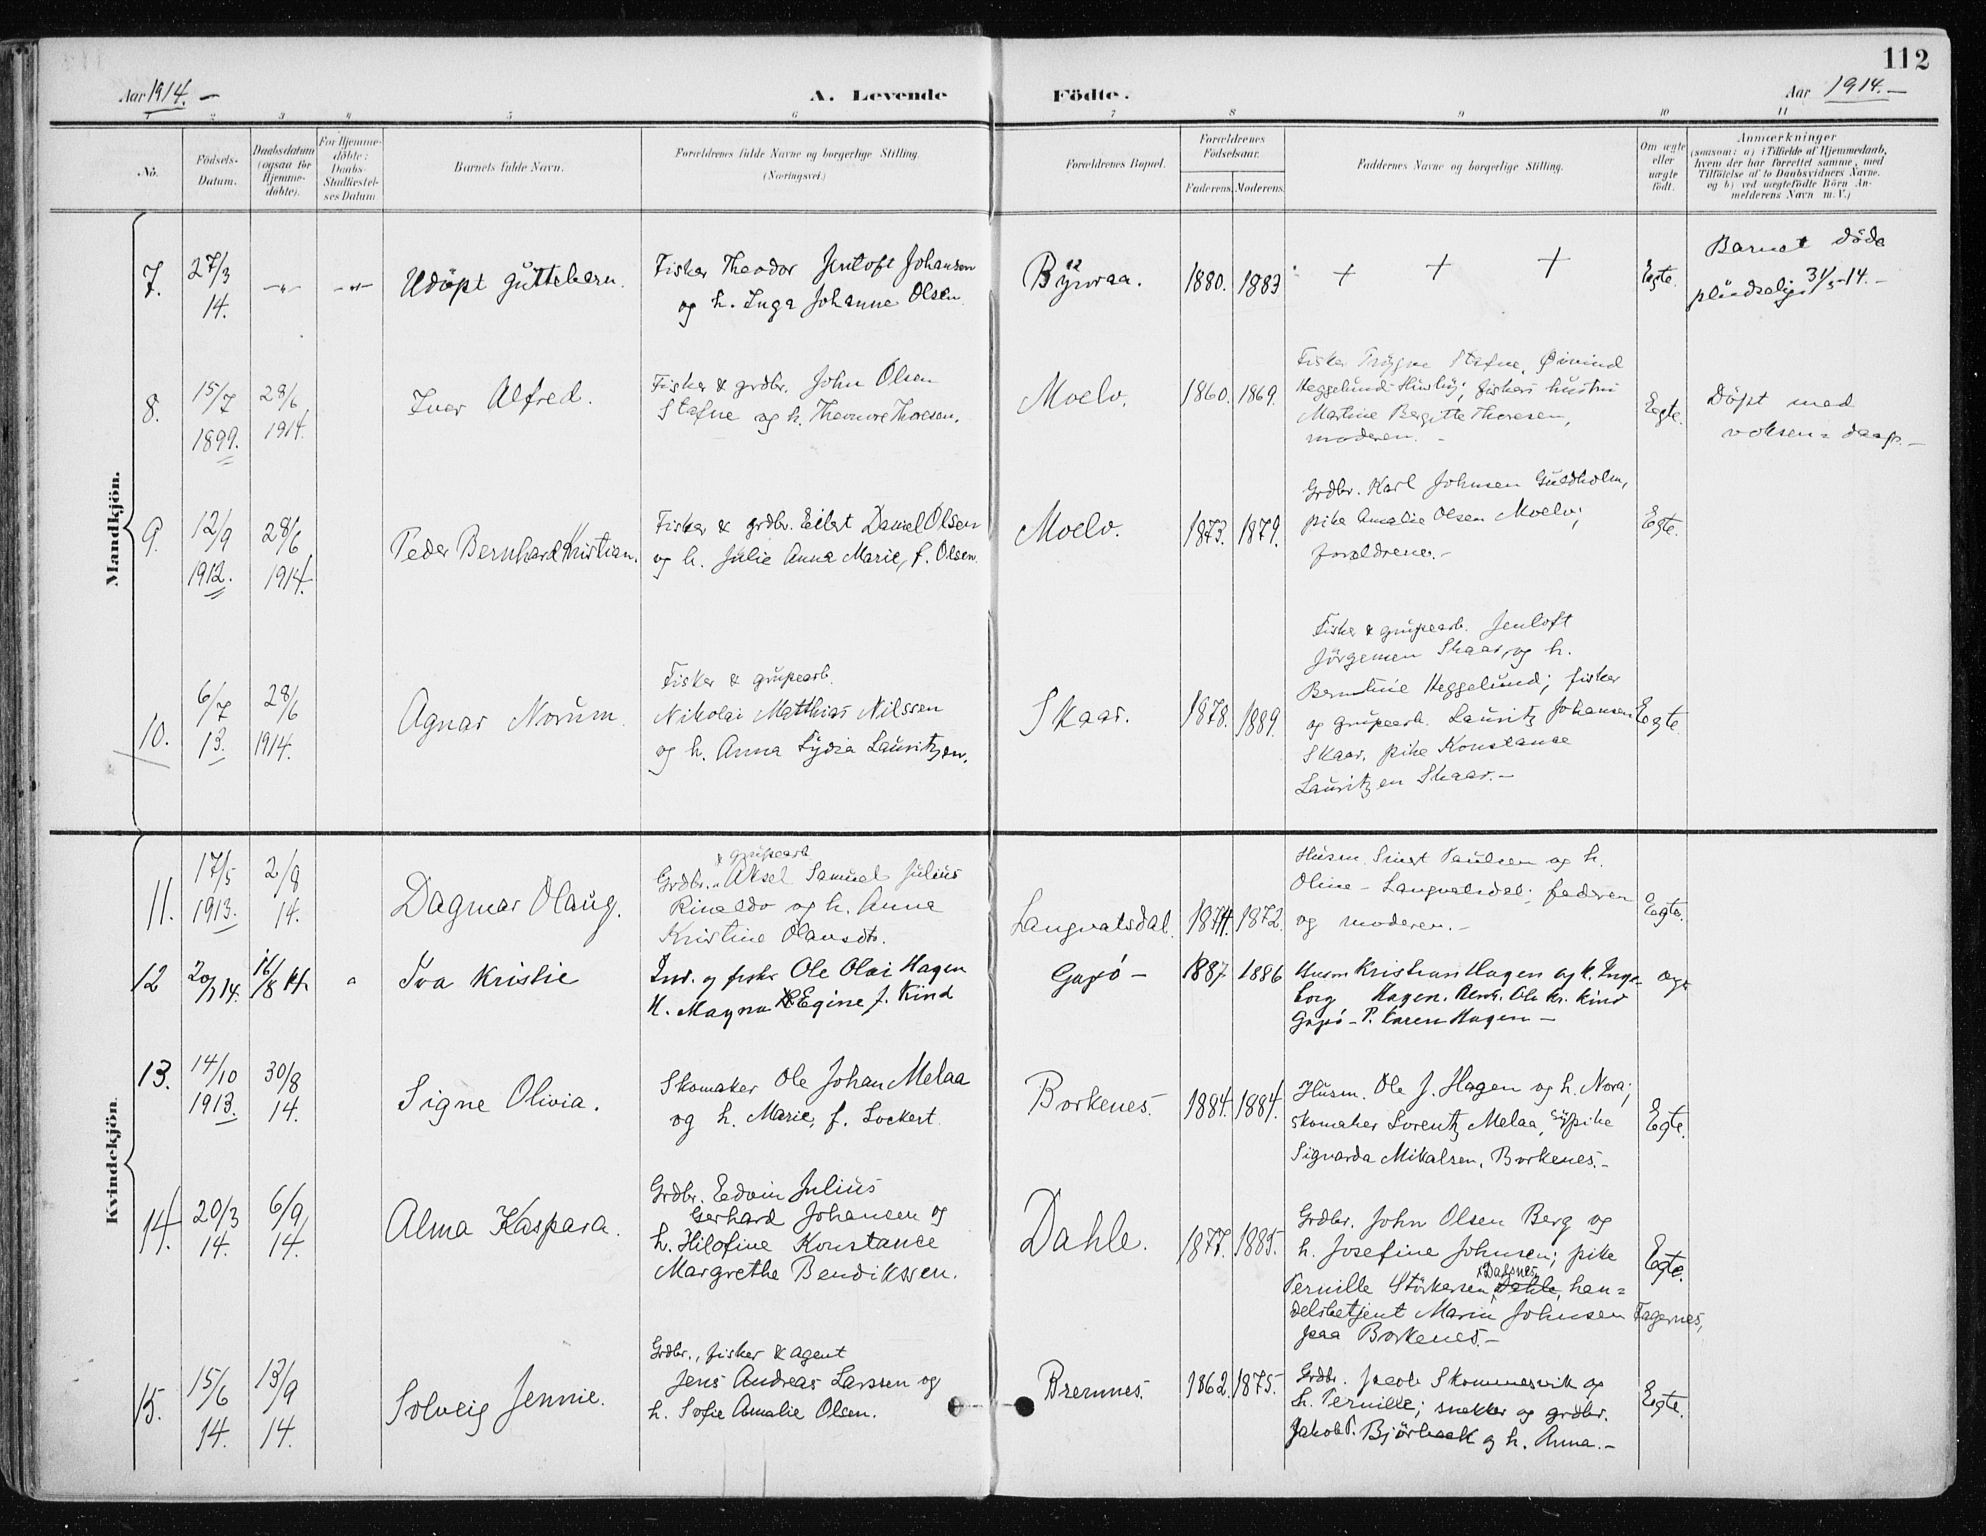 112
Aar 1914. –
A. Levende Födte.
Aar 1914. –
1 2 3 4 5 6 7 8 9 10 11
No.
Födsels-
Datum.
Daabsdatum
(ogsaa for
Hjemme-
döbte).
For Hjemme-
döbte:
Daabs-
Stadfæstel-
ses Datum
Barnets fulde Navn.
Forældrenes fulde Navne og borgerlige Stilling.
(Næringsvei.)
Forældrenes Bopæl.
Forældrenes
Födselsaar.
Faderens. Moderens.
Faddernes Navne og borgerlige Stilling.
Om ægte
eller
uægte
født.
Anmærkninger
(saasom: a) i Tilfælde af Hjemmedaab,
hvem der har forrettet samme, med
Tilföielse af to Daabsvidners Navne.
og b) ved uægtefödte Börn An-
melderens Navn m. V.)
Mandkjön.
7.
27/3
14.
Udöpt guttebarn.
Fisker Theodor Jentoft Johansen
og h. Inga Johanne Olsen.
1880. 1883
+ + +
Egte.
Barnet döde
plüdselig 31/5-14. –
8.
15/7
1899.
28/6
1914.
Iver Alfred.
Fisker & grdbr. John Olsen
Stafne og h.
Moelv.
1860. 1869.
Fisker Trygve Stafne, Øivind
Heggelund fiskers hustru
Martine Bergitte Thoresen,
moderen. –
Egte.
Döpt med
voksen-daap. –
9.
12/9
1912.
28/6
1914.
Peder Bernhard Kristian.
Fisker & grdbr. Eilert Daniel Olsen
og h. Julie Anna Marie, f. Olsen.
Moelv.
1873. 1879.
Grdbr. Karl Johnsen Guldholm,
pike Amalie Olsen Moelv;
forældrene. –
Egte.
10.
6/7
13.
28/6
1914.
Agnar Norum.
Fisker & grupearb.
Nikolai Matthias Nilssen
og h. Anna Lydia Lauritzen.
Skaar.
1878. 1889.
Fisker & grupearb. Jentoft
Jörgensen Skaar, og h.
Berntine Heggelund; fisker
og grupearb. Lauritz Johansen
Skaar, pike Konstance
Lauritzen Skaar. –
Egte.
Kvindekjön.
11.
17/5
1913.
2/8
14.
Dagmar Olaug.
& grupearb.
Grdbr. Aksel Samuel Julius
Rinaldo og h. Anna
Kristine Olausdtr.
Langvatsdal.
1874. 1872.
Husm. Sivert Paulsen og h.
Oline – Langvatsdal; faderen
og moderen. –
Egte.
12
20/1 14.
16/8 14.
Iva Kristie
Ind. og fisker Ole Olai Hagen
H. Magna Regine f. Kind
Gapö –
1887 1886
Husm Kristian Hagen og h. Inge-
borg Hagen. Ole Kr. Kind
Gapö – P. Karen Hagen –
13.
14/10
1913.
30/8
14.
Signe Olivia.
Skomaker Ole Johan Melaa
og h. Marie, f. Lockert.
Borkenes.
1884. 1884.
Husm. Ole J. Hagen og h. Nora;
skomaker Lorentz Melaa, sypike
Sigvarda Mikalsen, Borkenes. –
Egte.
14.
20/3
14.
6/9
14.
Alma Kaspara.
Grdbr. Edvin Julius
Gerhard Johansen og
h. Hilofine Konstance
Margrethe Bendikssen.
Dahle.
1877. 1885.
Grdbr. John Olsen Berg og
h. Josefine Johnsen; pike
Pernille Störkersen Dahle, han-
delsbetjent Marin Johnsen Fagernes,
paa Borkenes. –
Egte.
15.
15/6
14.
13/9
14.
Solveig Jennie.
Grdbr., fisker & agent
Jens Andreas Larssen og
h. Sofie Amalie Olsen.
Bremnes.
1862. 1875.
Grdbr. Jacob Skommesvik og
h. Pernille; snekker og grdbr.
Jakob P. Björbæk og h. Anna. –
Egte.